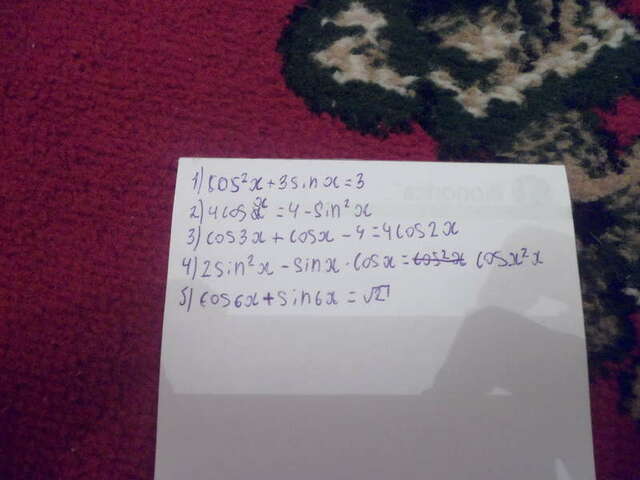 1) cos²x + 3sinx = 3
2) 4cos x = 4 - sin²x
3) cos3x + cosx - 4 = 4cos2x
4) 2sin²x - sinx · cosx = cosx²x
5) cos6x + sin6x = √2